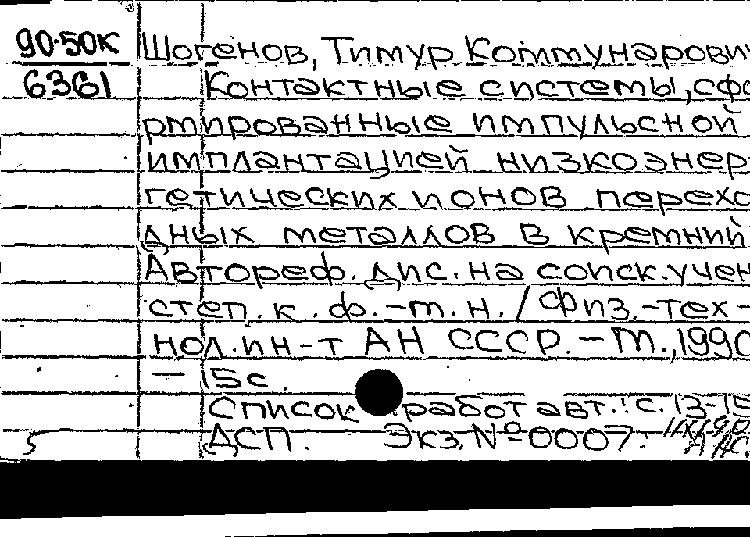 90-50к Шогенов, Тимур Коммунарови
6361 Контактные системы, сфо
рмированные импульсной
имплантацией низкоэнер
гетических ионов перехо
дных металлов в кремний
Автореф. дис. на соиск. учен
степ. к. ф.-т. н. / Физ.-тех-
нол. ин-т АН СССР. - М., 1990
- 15 с.
Список работ авт.: с. 13-15
5 ДСП. Экз. № 0007.